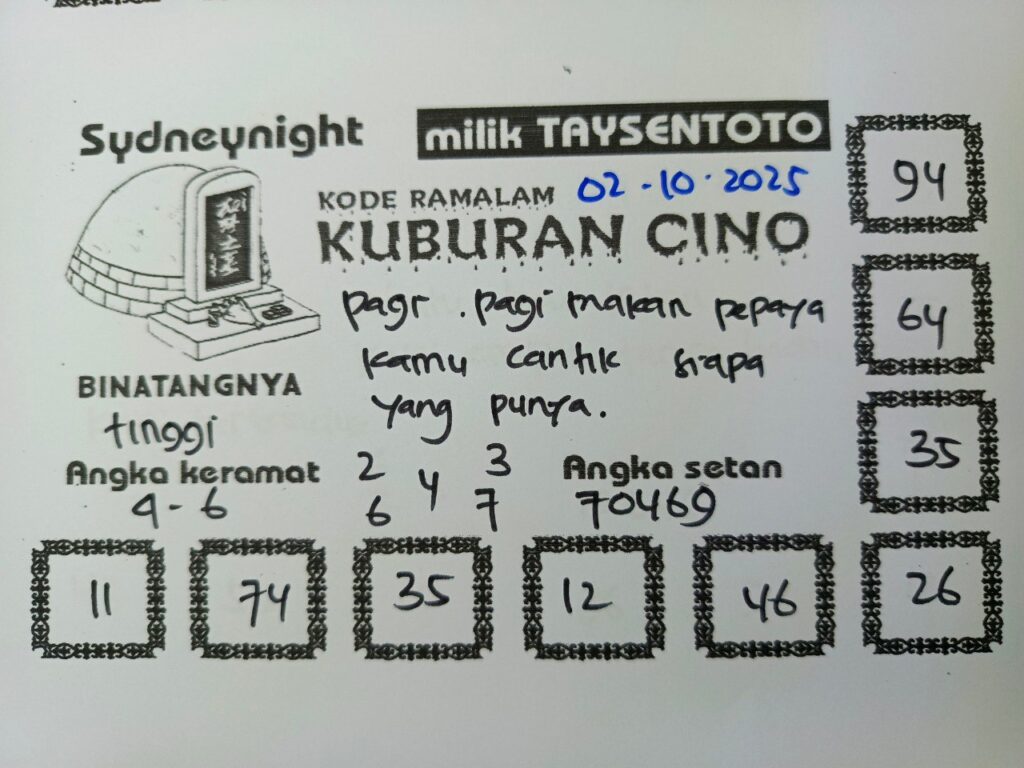 Sydneynight
milik TAYSENTOTO
KODE RAMALAM 02-10-2025
KUBURAN CINO
pagi . pagi makan pepaya
kamu cantik siapa
yang punya.
BINATANGNYA
tinggi
Angka keramat
9 - 6
2 3
4
6 7
Angka setan
70469
94
64
35
11 74 35 12 46 26